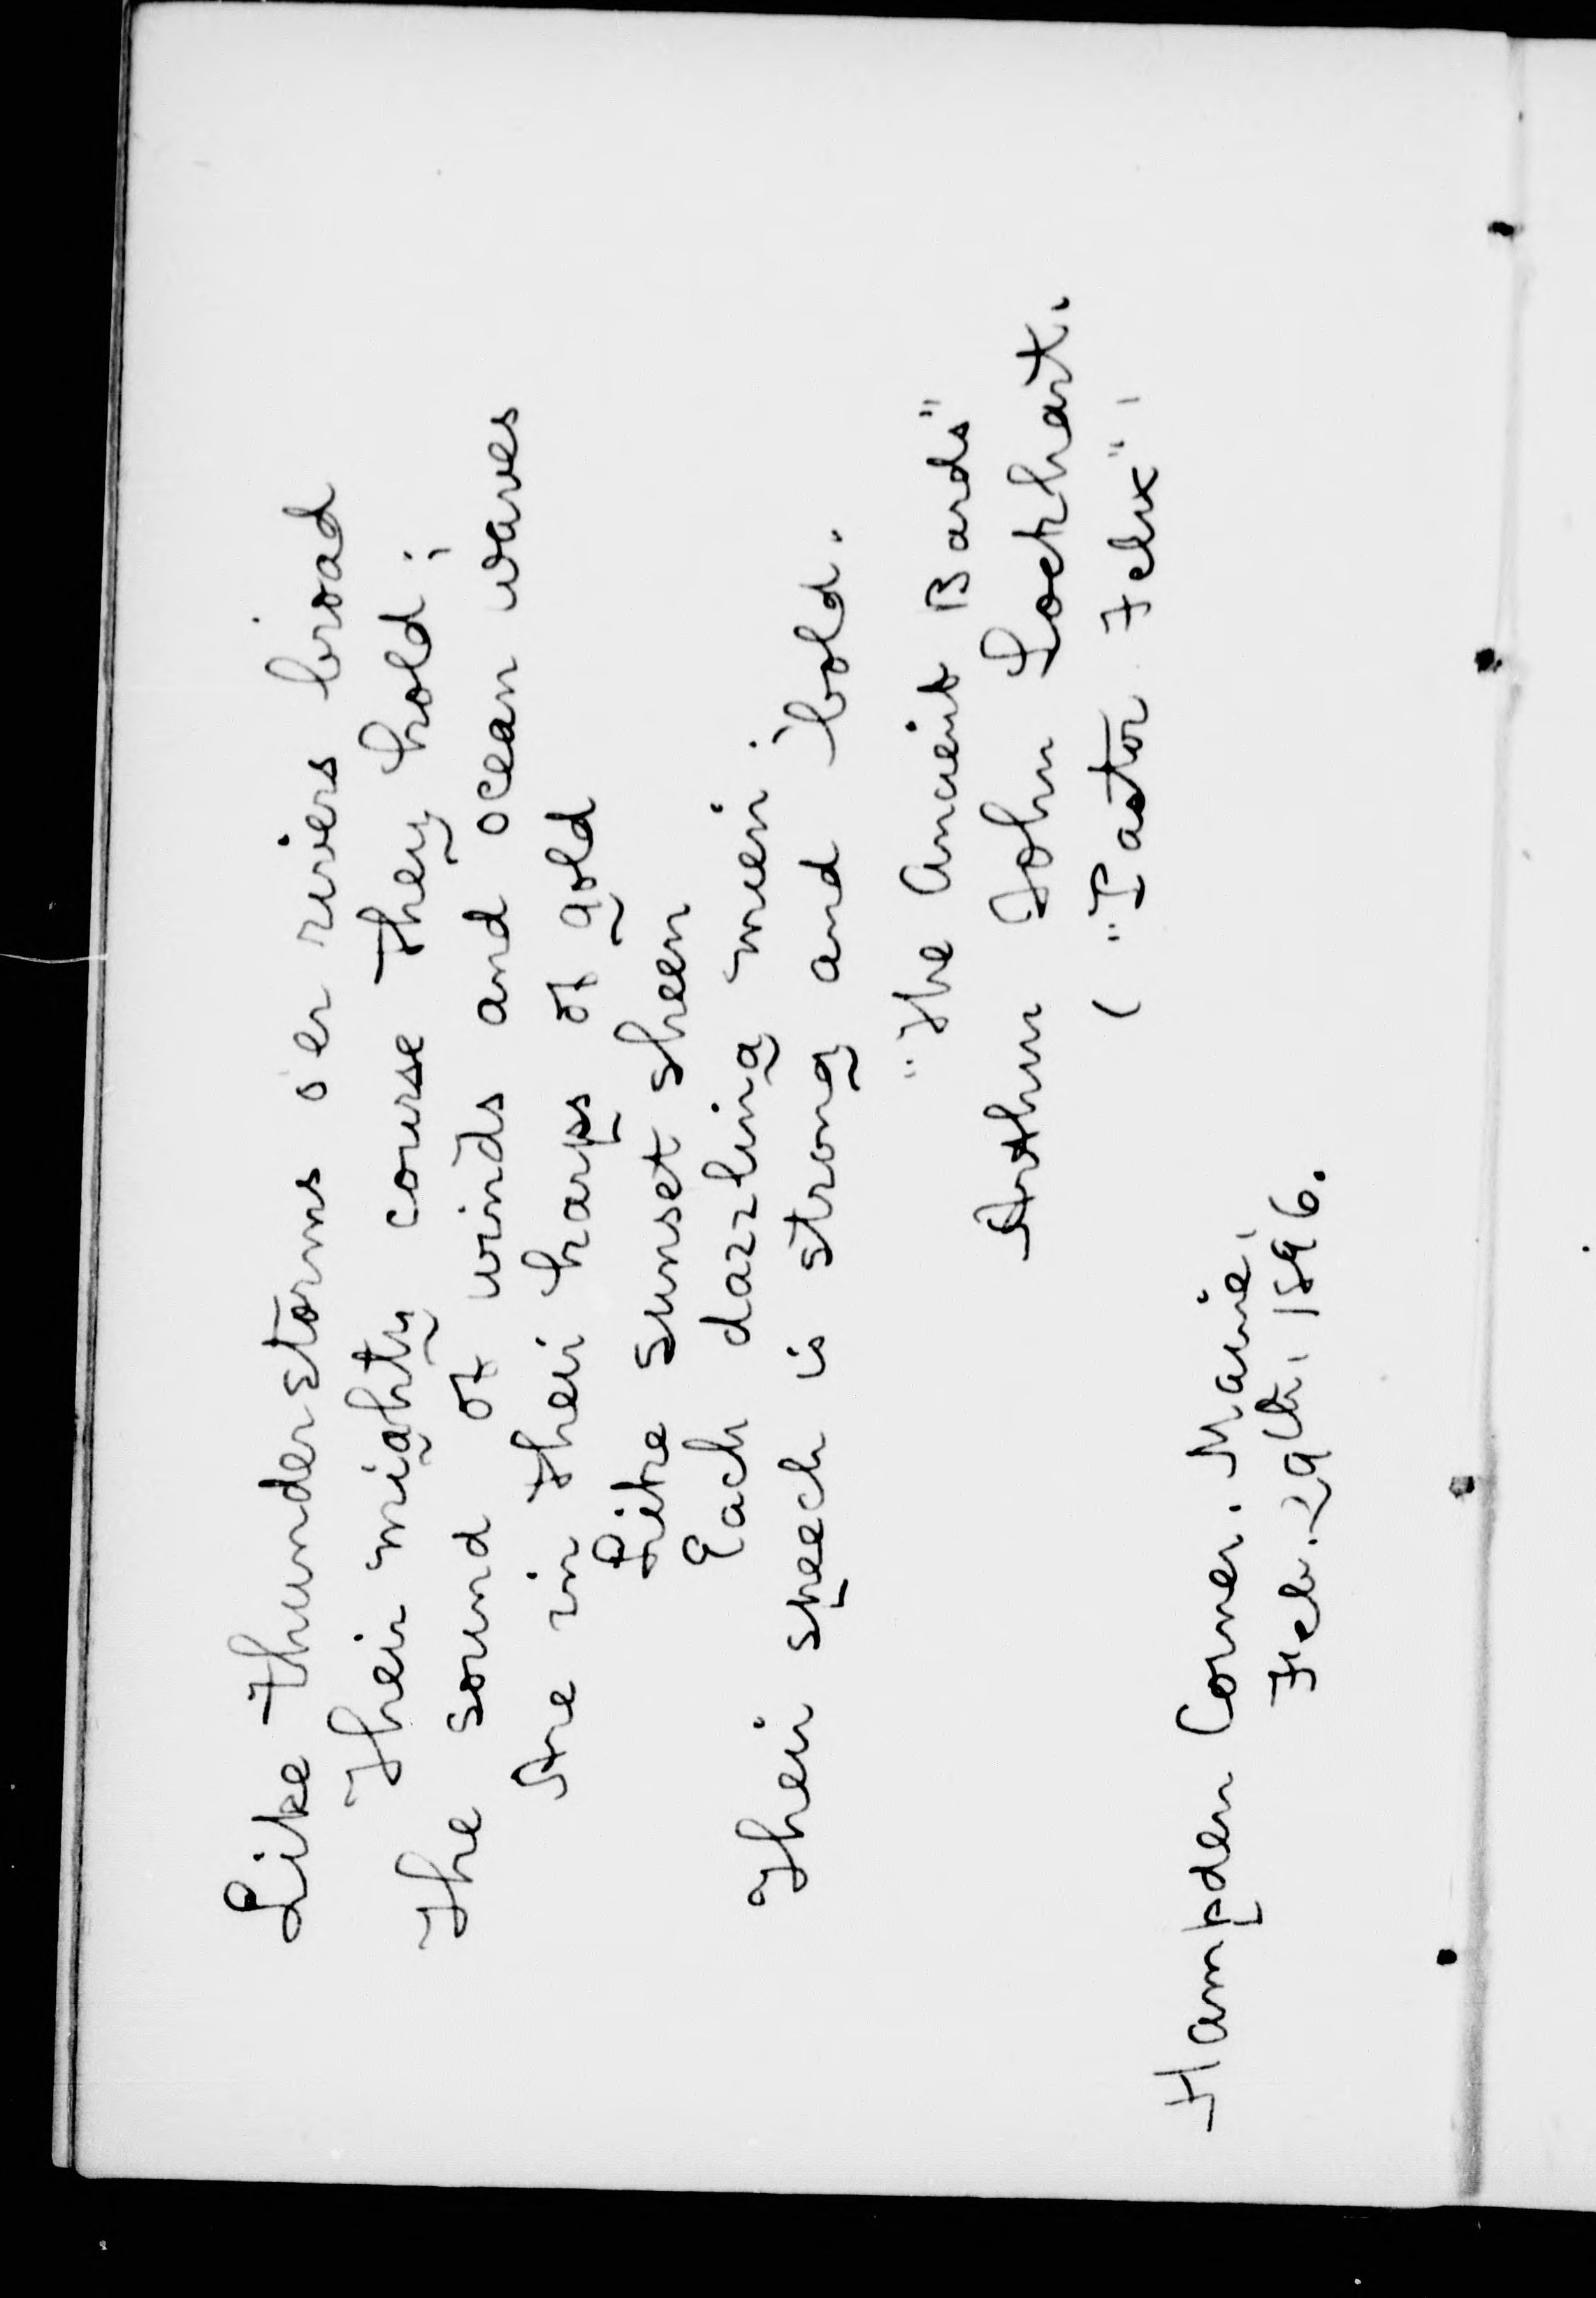 Like thunderstorms o'er rivers broad
Their mighty course they hold;
The sound of winds and ocean waves
Are in their harps of gold
Like sunset sheen
Each dazzling mien;
Their speech is strong and bold.
"The Ancient Bards"
Arthur John Lockhart.
("Pastor Felix",
Hampden Corner, Maine,
Feb. 29th, 1896.